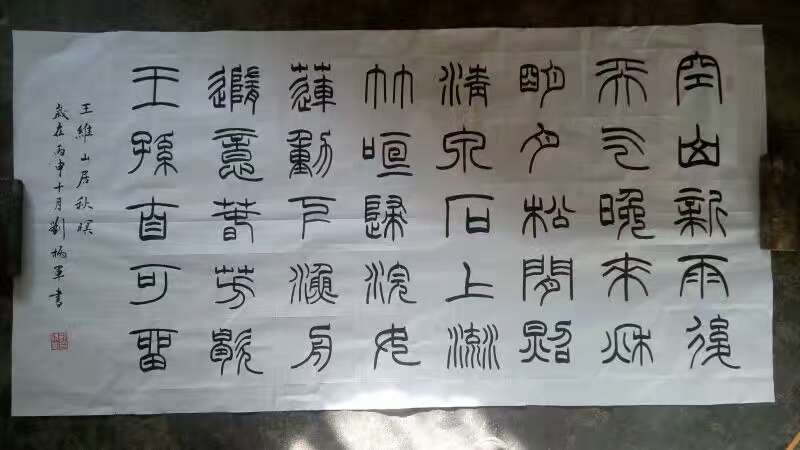 空山新雨後
天气晚來秋
明月松間照
清泉石上流
竹喧歸浣女
蓮動下漁舟
隨意春芳歇
王孫自可留
王維山居秋暝
歲在丙申十月劉軍書